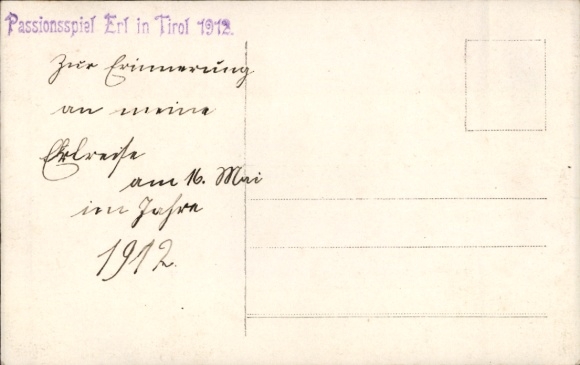 Passionsspiel Erl in Tirol 1912.
Zur Erinnerung
an meine
Erlreise
am 16. Mai
im Jahre
1912.